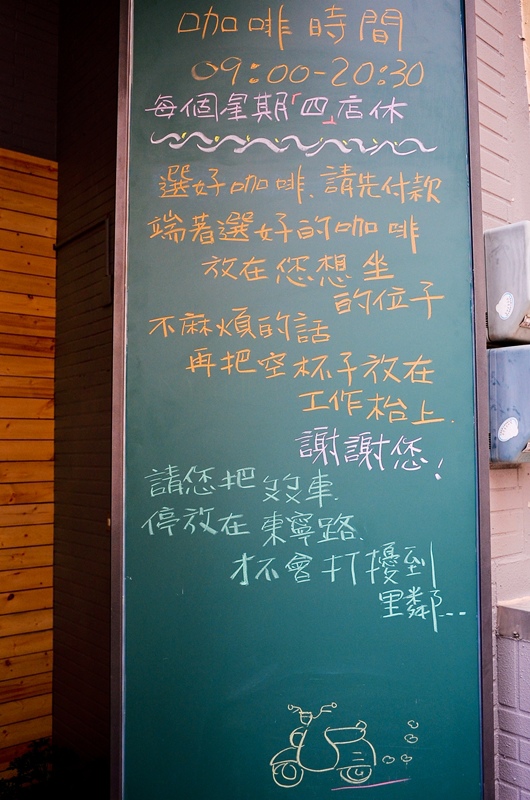 咖啡時間
09:00-20:30
每個星期「四」店休
選好咖啡、請先付款
端著選好的咖啡
放在您想坐
的位子
不麻煩的話
再把空杯子放在
工作枱上.
謝謝您!
請您把ㄡㄡ車.
停放在東寧路.
才不會打擾到
里鄰...